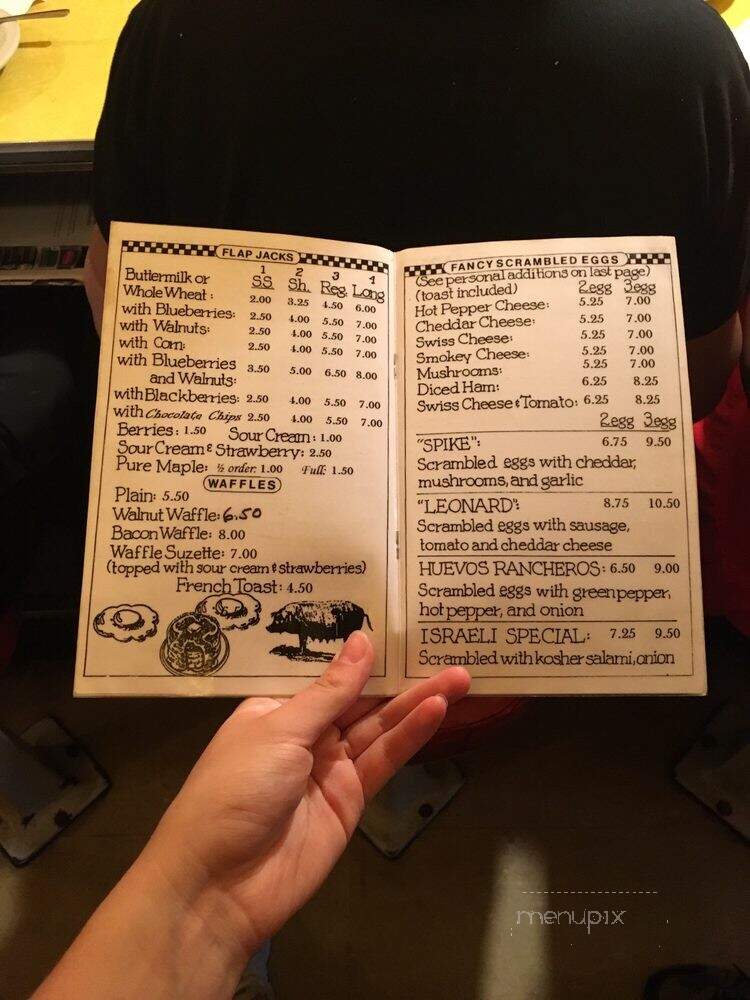 FLAP JACKS
1 2 3 4
S.S. Sh. Reg. Long
Buttermilk or
Whole Wheat: 2.00 3.25 4.50 6.00
with Blueberries: 2.50 4.00 5.50 7.00
with Walnuts: 2.50 4.00 5.50 7.00
with Corn: 2.50 4.00 5.50 7.00
with Blueberries
and Walnuts: 3.50 5.00 6.50 8.00
with Blackberries: 2.50 4.00 5.50 7.00
with Chocolate Chips 2.50 4.00 5.50 7.00
Berries: 1.50 Sour Cream: 1.00
Sour Cream & Strawberry: 2.50
Pure Maple: ½ order: 1.00 Full: 1.50
WAFFLES
Plain: 5.50
Walnut Waffle: 6.50
Bacon Waffle: 8.00
Waffle Suzette: 7.00
(topped with sour cream & strawberries)
French Toast: 4.50
FANCY SCRAMBLED EGGS
(See personal additions on last page)
(toast included) 2egg 3egg
Hot Pepper Cheese: 5.25 7.00
Cheddar Cheese: 5.25 7.00
Swiss Cheese: 5.25 7.00
Smokey Cheese: 5.25 7.00
Mushrooms: 5.25 7.00
Diced Ham: 6.25 8.25
Swiss Cheese & Tomato: 6.25 8.25
2egg 3egg
"SPIKE": 6.75 9.50
Scrambled eggs with cheddar,
mushrooms, and garlic
"LEONARD": 8.75 10.50
Scrambled eggs with sausage,
tomato and cheddar cheese
HUEVOS RANCHEROS: 6.50 9.00
Scrambled eggs with green pepper,
hot pepper, and onion
ISRAELI SPECIAL: 7.25 9.50
Scrambled with kosher salami, onion
menupix